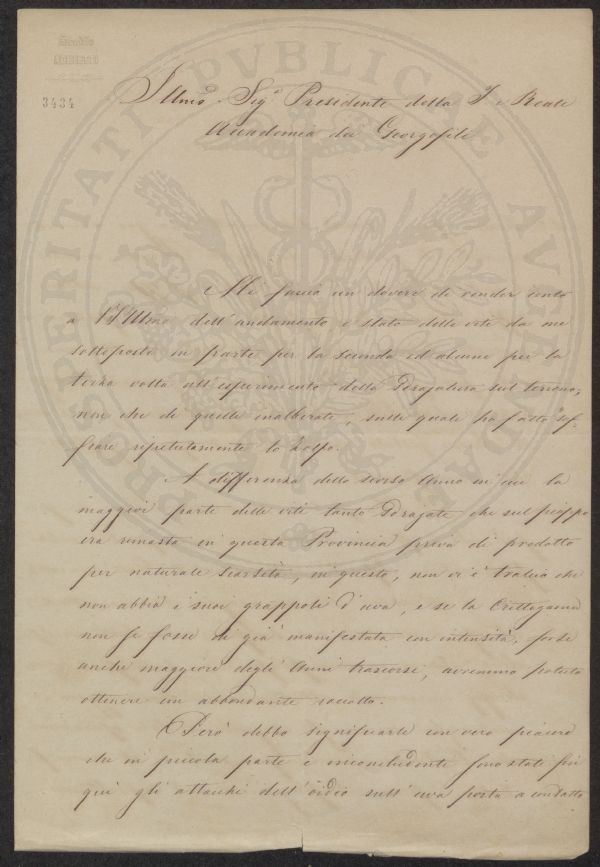 3434
PROSPERITATI PVBLICAE AVGENDAE
Illmo. Sigr. Presidente della I. e Reale
Accademia dei Georgofili
Mi faccio un dovere di render conto
a V.S. Illma dell'andamento e stato delle viti da me
sottoposte in parte per la seconda ed alcune per la
terza volta all'esperimento della Sdrajatura sul terreno,
non che di quelle inalberate, sulle quale ho fatto sof-
friare ripetutamente lo zolfo.
A differenza dello scorso Anno in cui la
maggior parte delle viti tanto Sdrajate che sul pioppo
era rimasta in questa Provincia priva di prodotto
per naturale scarsità, in questo, non vi è tralcia che
non abbia i suoi grappoli d'uva, e se la Crittogama
non si fosse di già manifestata con intensità, forse
anche maggiore degli Anni trascorsi, avremmo potuto
ottenere un abbondante raccolto.
Però debbo significarle con vero piacere
che in piccola parte e inconcludente sono stati fin
qui gli attacchi dell'oidio sull'uva posta a contatto